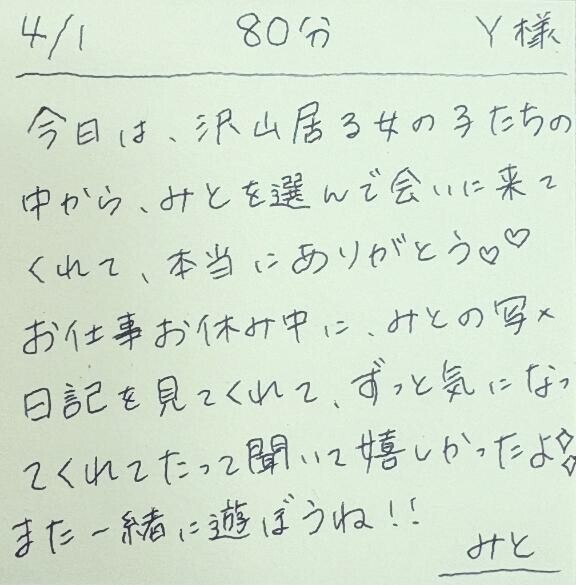 4/1 80分 Y様
今日は、沢山居る女の子たちの
中から、みとを選んで会いに来て
くれて、本当にありがとう♡♡
お仕事お休み中に、みとの写メ
日記を見てくれて、ずっと気になっ
てくれてたって聞いて嬉しかったよ✧✧
また一緒に遊ぼうね!!
みと